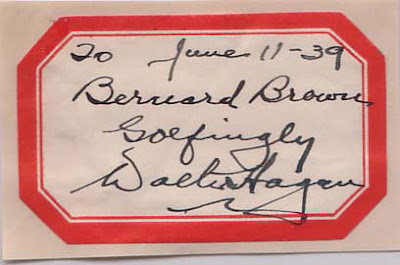 To June 11-39
Bernard Brown
Golfingly
Walter Hagen